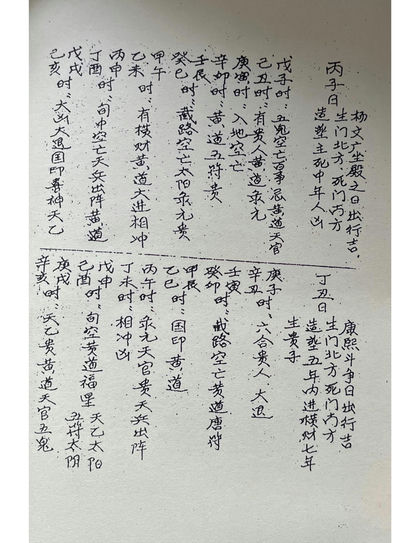 杨文广坐殿之日出行吉
丙子日 生门北方 死门丙方
造塟主死中年人凶
戊子时：五鬼空亡百事忌黄道天官
己丑时：有贵人黄道永元
庚寅时：入地空亡
辛卯时：黄道五符贵
壬辰
癸巳时：截路空亡太阳永元贵
甲午
乙未时：有横财黄道大进相冲
丙申时：
丁酉时：旬中空亡天兵出阵黄道
戊戌
己亥时：大凶大退国印寿神天乙
康熙斗争日出行吉
丁丑日 生门北方 死门丙方
造塟五年内进横财七年
生贵子
庚子时：六合贵人 大退
辛丑
壬寅
癸卯时：截路空亡黄道唐符
甲辰
乙巳时：国印黄道
丙午时：永元天官贵天兵出阵
丁未时：相冲凶
戊申
己酉时：旬空黄道福星天乙太阳
庚戌时： 五符太阴
辛亥时：天乙贵黄道天官五鬼